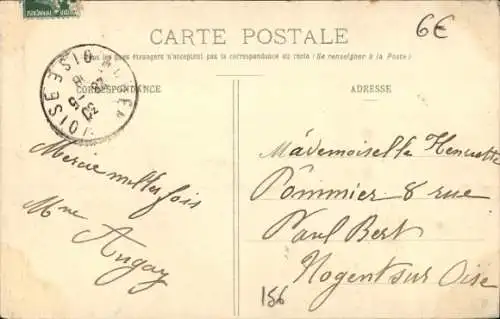 6€
CARTE POSTALE
Tous les pays étrangers n'acceptent pas la correspondance au recto (Se renseigner à la Poste)
CORRESPONDANCE
ADRESSE
OISE
Mercie mille fois
Mme Augay
Mademoiselle Henriette
Pommier 8 rue
Paul Bert
Nogent sur Oise
156